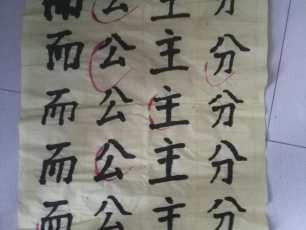 而公主分
而公主分
而公主分
而公主分
而公主分